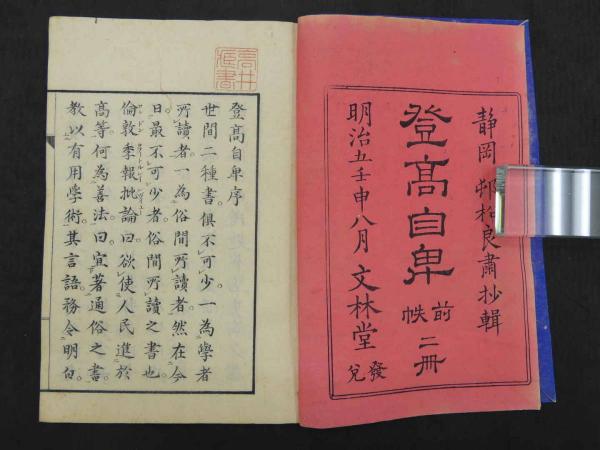 静岡 邨松良肅抄輯
登高自卑 前帙 二冊
明治五壬申八月 文林堂 發兌
高井藏書
登高自卑序
世間二種書。俱不可少。一為學者
所讀者。一為俗間所讀者。然在今
日最不可少者。俗間所讀之書也。
倫敦季報批論曰。欲使人民進於
高等。何為善法。曰。宜著通俗之書。
教以有用學術。其言語務令明白。